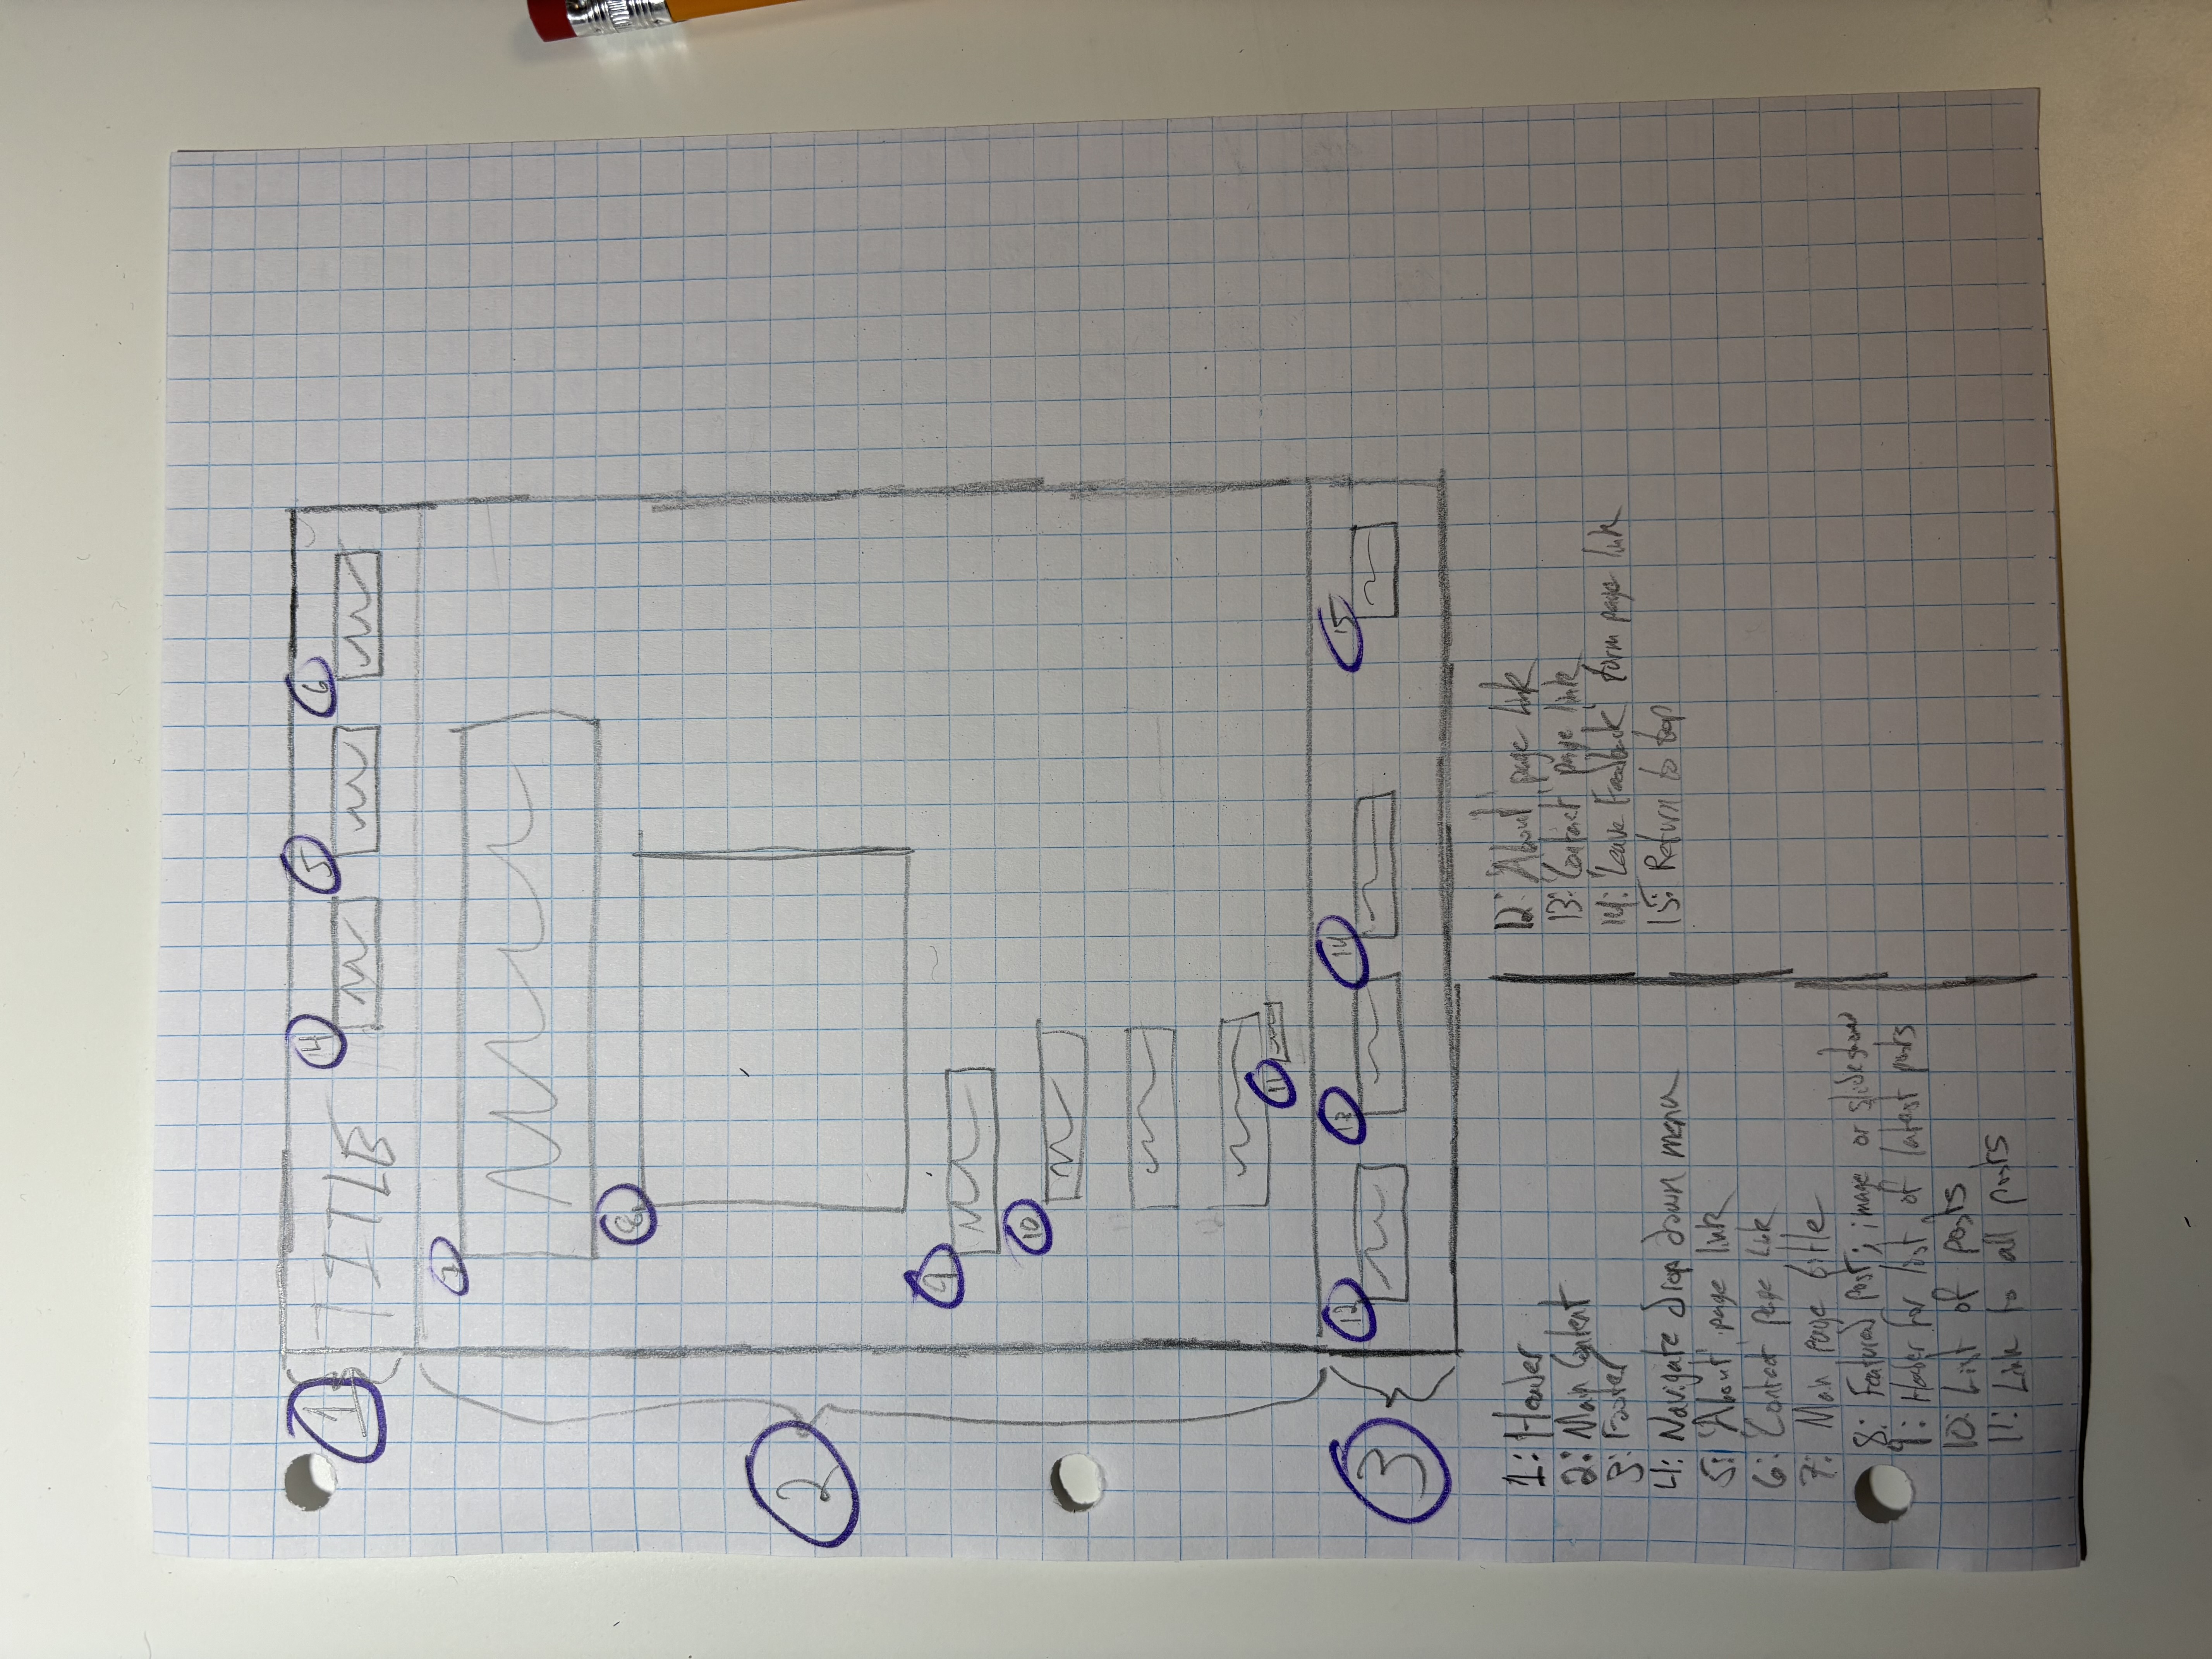 1 TITLE 4 5 6
7
8
2
9
10
11
3 12 13 14 15
1: Header
2: Main Content
3: Footer
4: Navigate drop down menu
5: 'About' page link
6: 'Contact' page Link
7: Main page title
8: Featured post; image or slideshow
9: Header for list of latest posts
10: List of posts
11: Link to all posts
12: 'About' page link
13: 'Contact' page link
14: 'Leave Feedback' form page link
15: Return to top